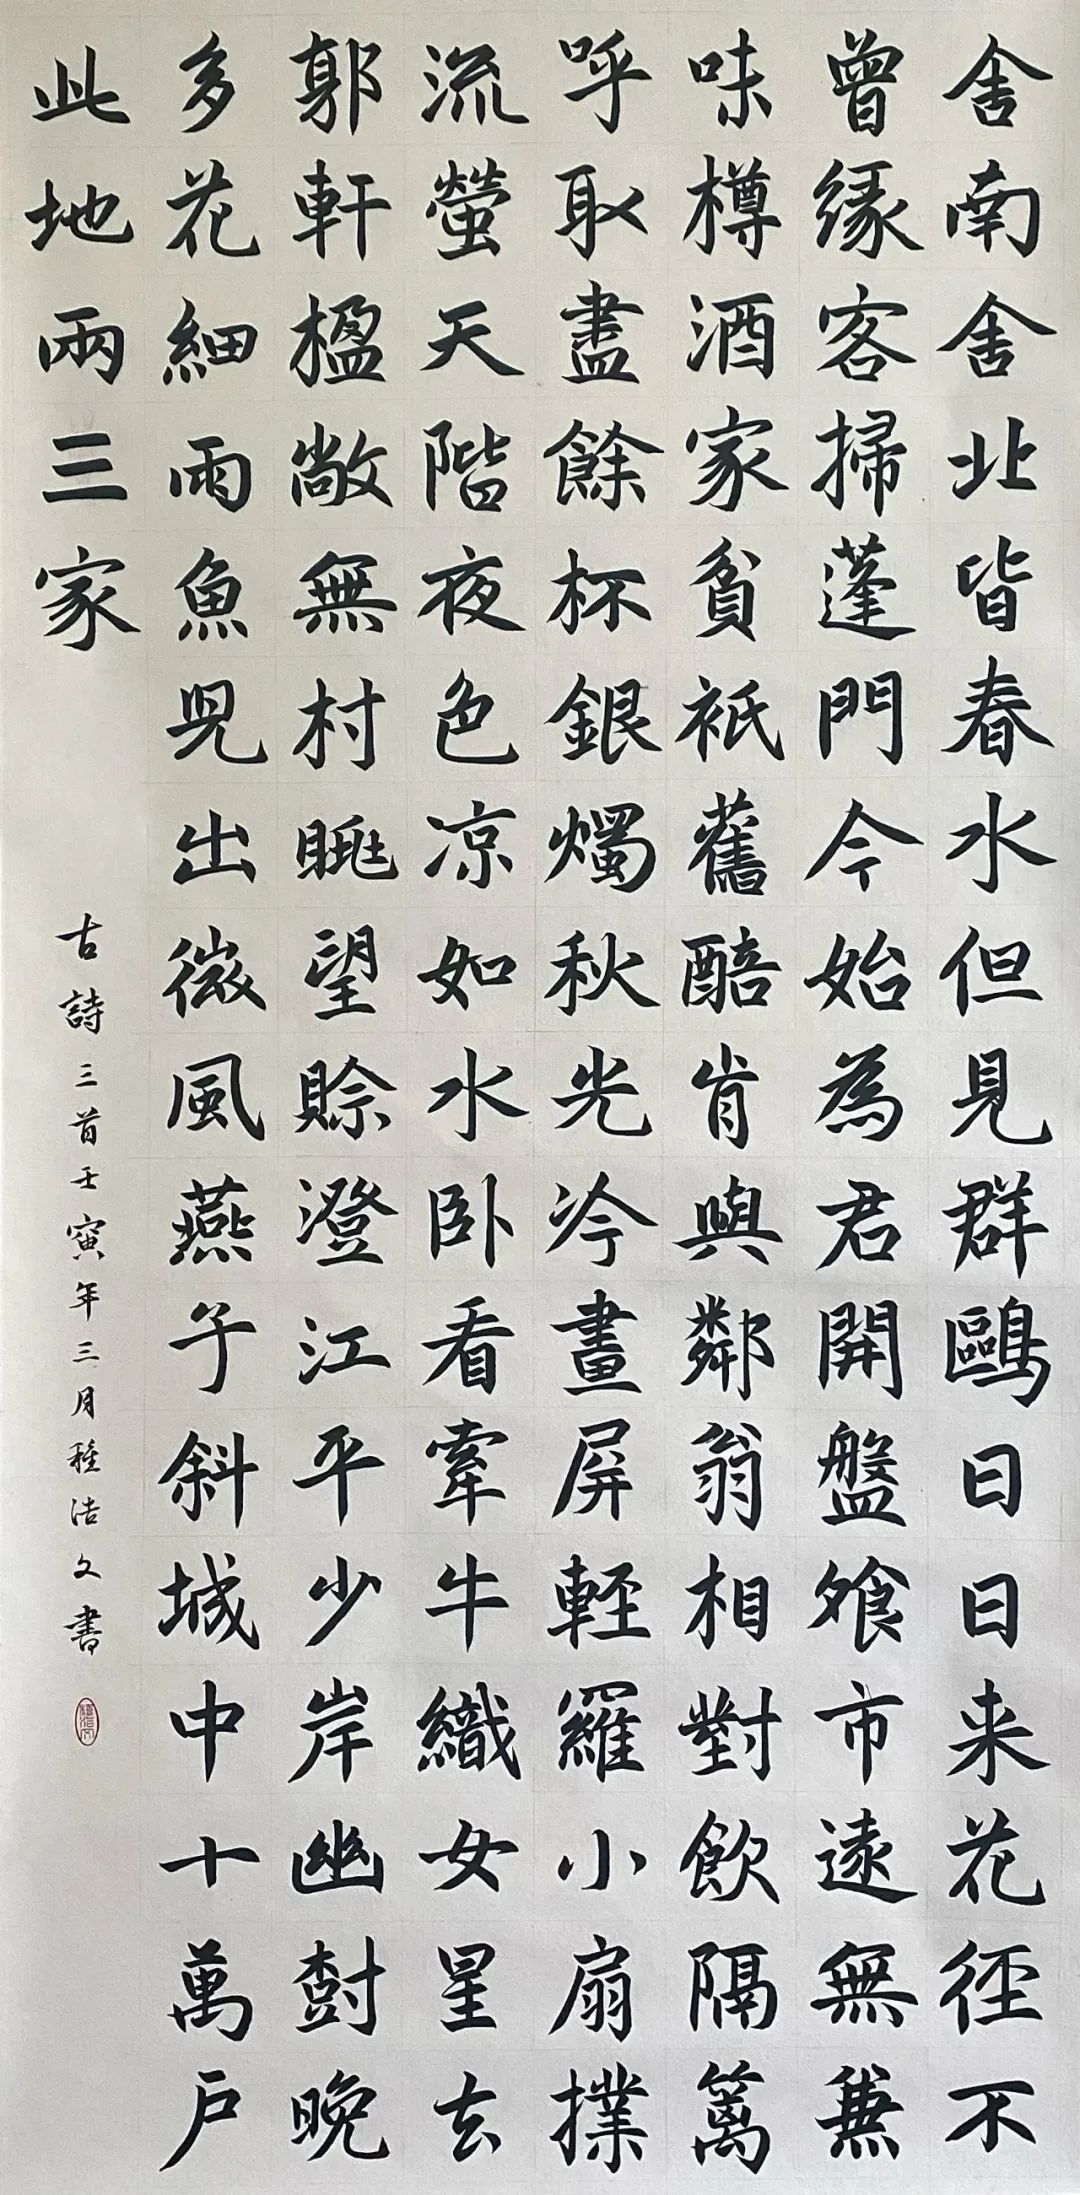 舍南舍北皆春水但見群鷗日日来花徑不
曾緣客掃蓬門今始為君開盤飧市遠無兼
味樽酒家貧祇舊醅肯與鄰翁相對飲隔籬
呼取盡餘杯銀燭秋光冷畫屏輕羅小扇撲
流螢天階夜色凉如水卧看牽牛織女星去
郭軒楹敞無村眺望賒澄江平少岸幽樹晚
多花細雨魚兒出微風燕子斜城中十萬户
此地兩三家
古詩三首壬寅年三月程洁文書